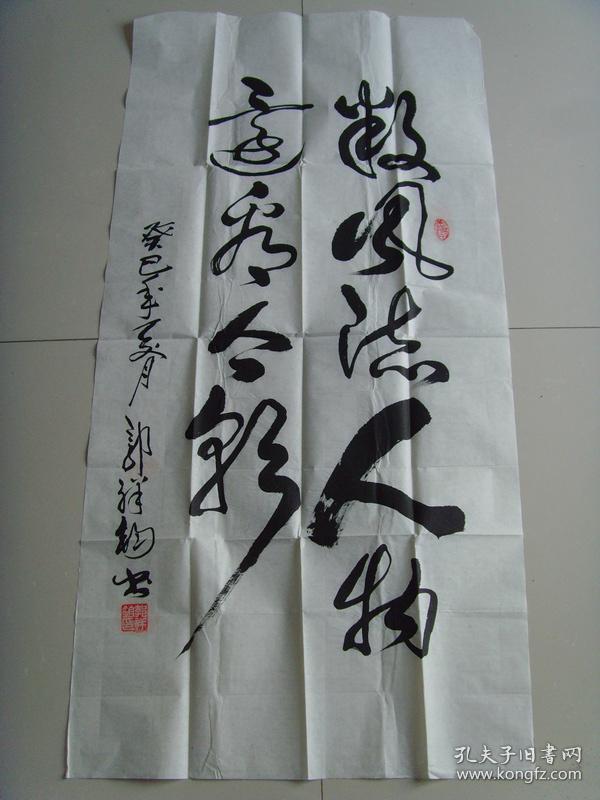 数风流人物
还看今朝
癸巳年夏月 郭祥钧书
孔夫子旧书网
www.kongfz.com